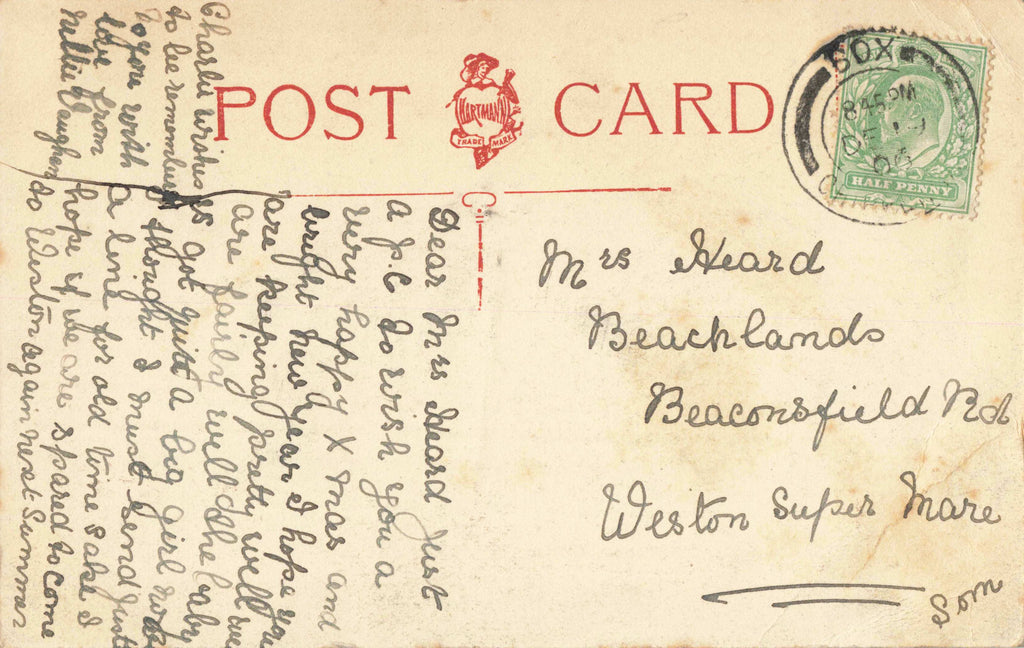 POST CARD
HARTMANN
TRADE MARK
BOX
8 45 PM
DE
06
HALF PENNY
Mrs Heard
Beachlands
Beaconsfield Rd
Weston Super Mare
Som
Dear Mrs Heard Just
a P.C to wish you a
very happy X mas and
bright New Year I hope you
are keeping pretty well we
are fairly well & the baby
is got quite a big girl now
I thought I must send just
a line for old time sake I
hope if we are spared to come
to Weston again next Summer
Charlie wishes
to be remembered
to you with
love from
Nellie Vaughan